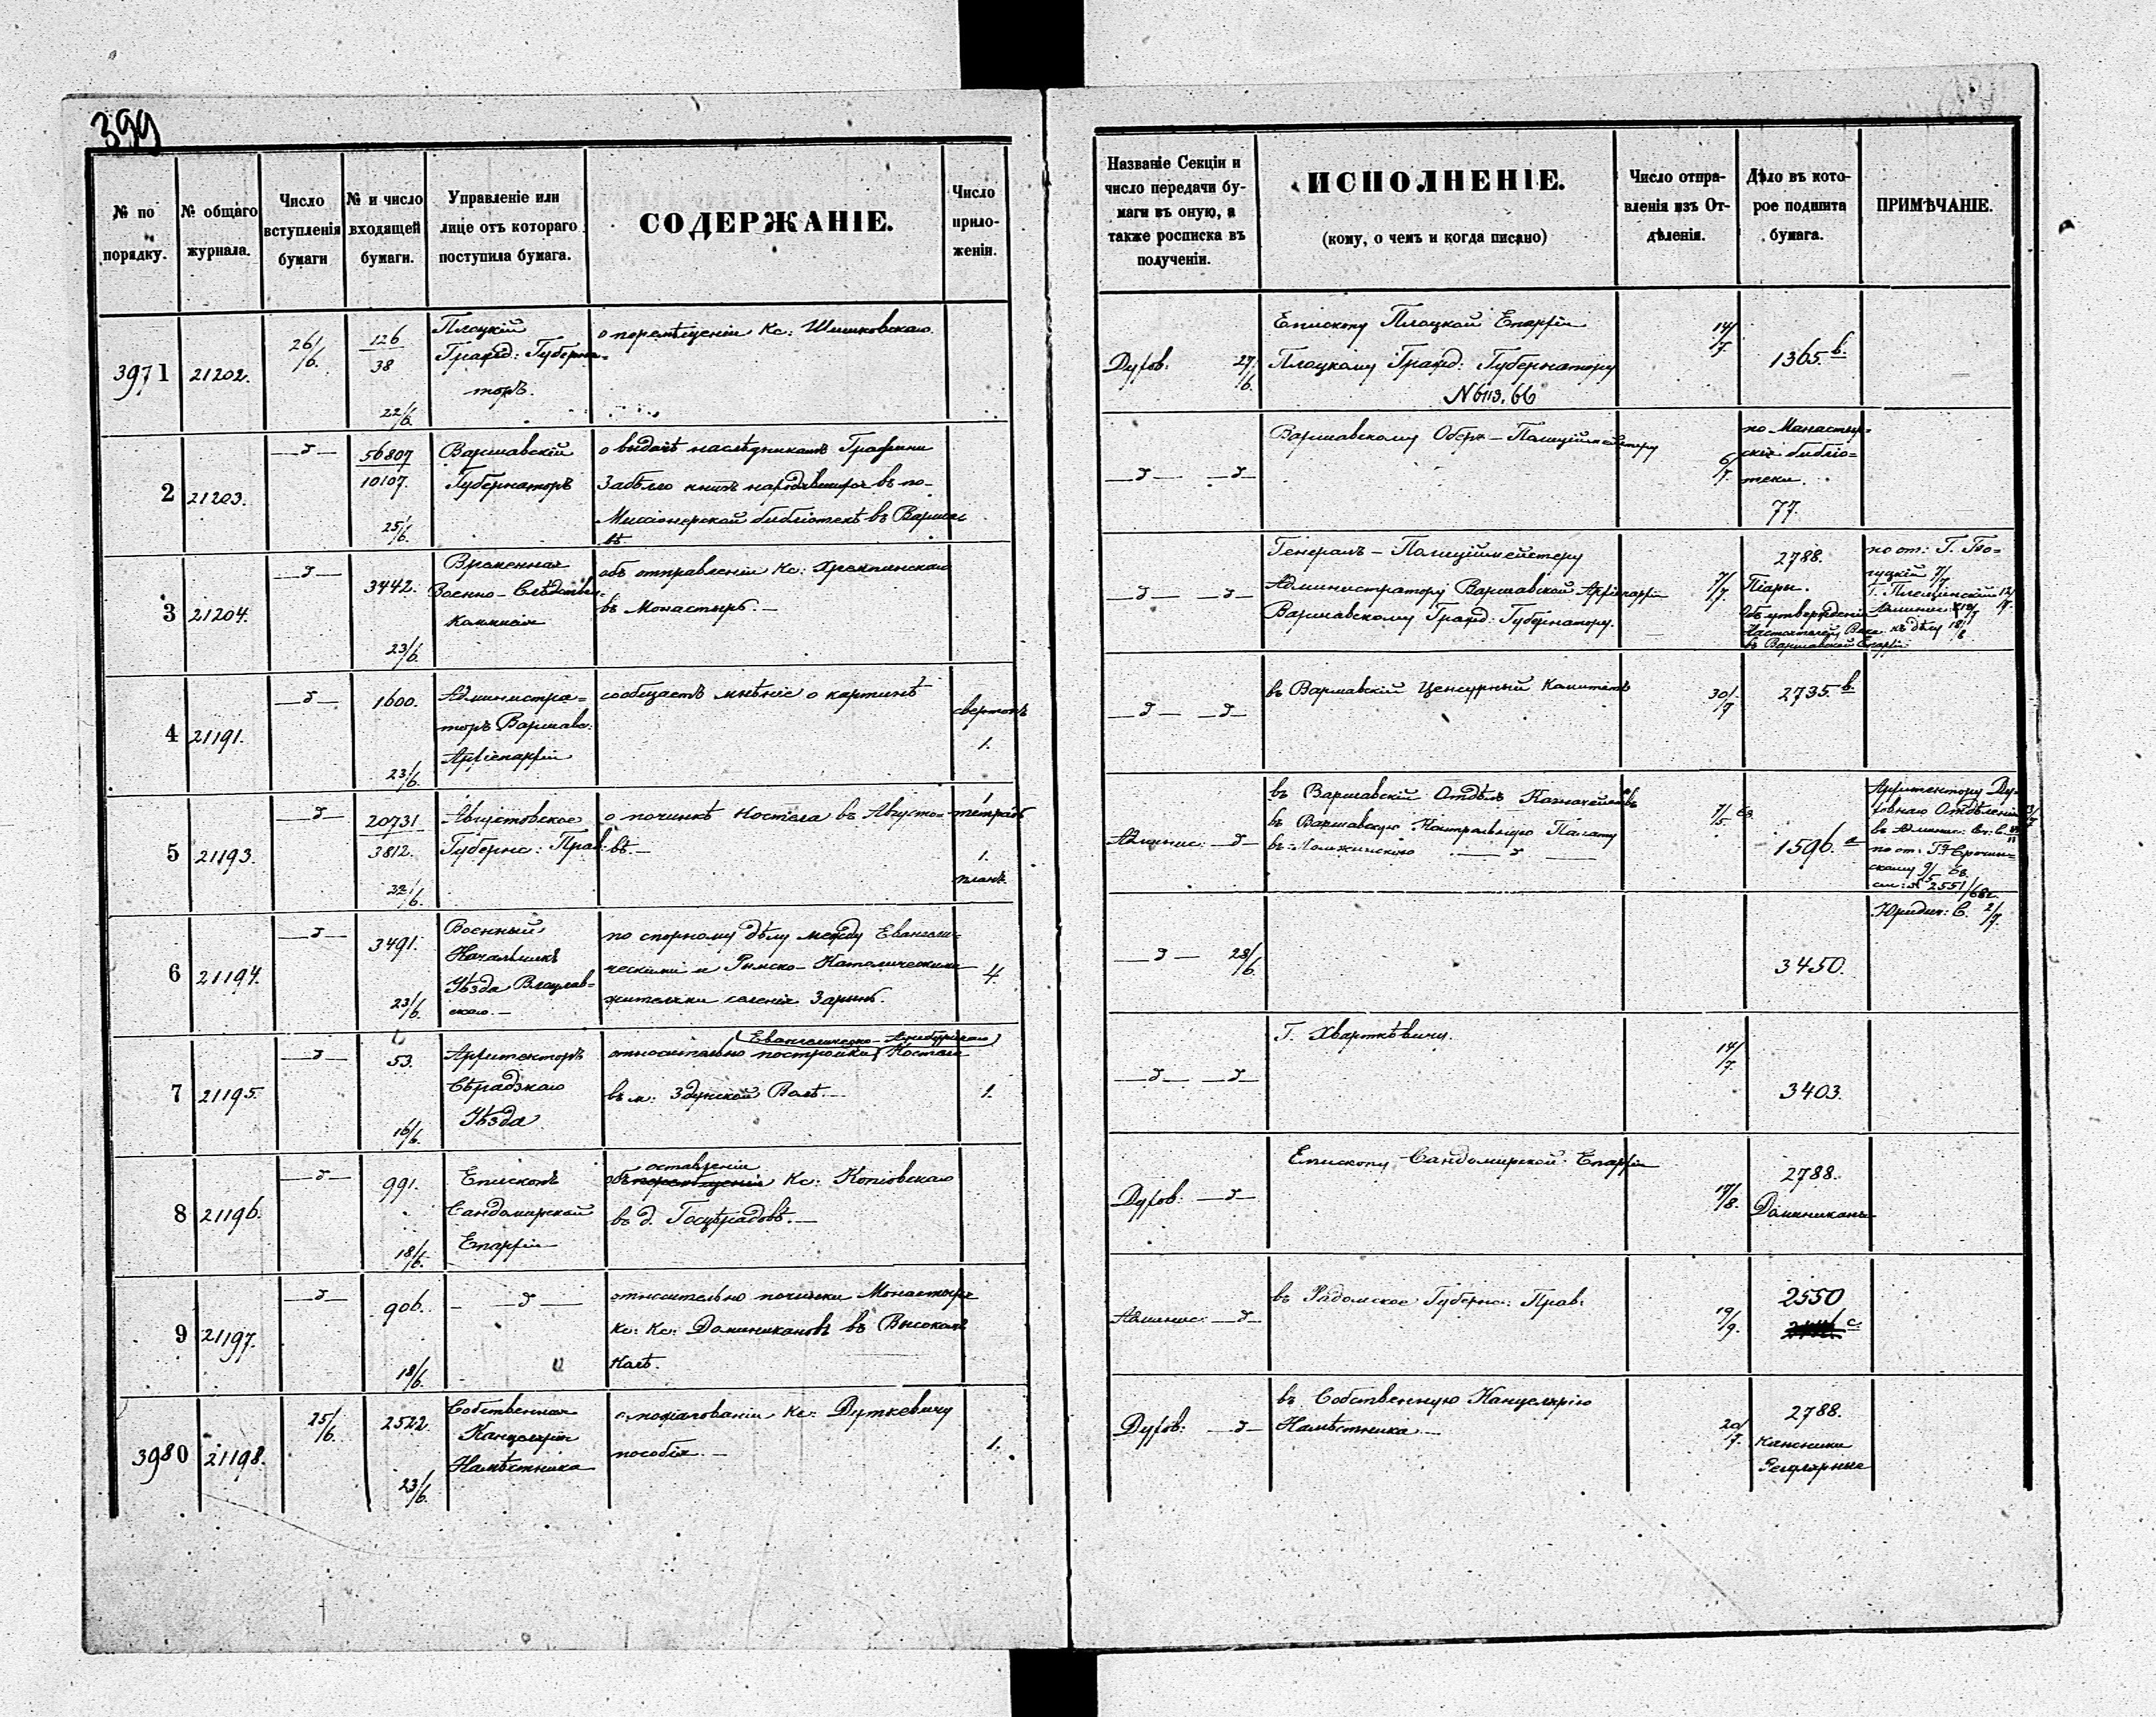 399
№ по порядку.
№ общаго журнала.
Число вступленія бумаги
№ и число входящей бумаги.
Управленіе или лице отъ котораго поступила бумага.
СОДЕРЖАНІЕ.
Число прило- женін.
Названіе Секціи и число передачи бу- маги въ оную, а также росписка въ полученіи.
ИСПОЛНЕНІЕ.
(кому, о чемъ и когда писано)
Число отпра- вленія изъ От- дѣленія.
Дѣло въ кото- рое подшита бумага.
ПРИМѢЧАНІЕ.
3971
21202.
26/6.
126
38
22/6.
Плоцкій
Гражд: Губерна-
торъ.
о перемѣщеніи Кс: Шишковскаго.
Духов: 27/6.
Епископу Плоцкой Епархіи
Плоцкому Гражд: Губернатору
N 6113. 66
14/7.
1365 b.
2
21203.
—д—
56807
10107.
25/6.
Варшавскій
Губернаторъ
о выдачѣ наслѣдникамъ Графини
Забѣлло книгъ находившихся въ по-
Миссіонерской библіотекѣ въ Варша-
вѣ.
—д— —д—
Варшавскому Оберъ-Полиціймейстеру
6/7.
по Монастыр-
скія библіо-
теки.
77.
3
21204.
—д—
3442.
23/6.
Временная
Военно-Слѣдствен.
Коммисія
объ отправленіи Кс:
въ Монастырь.—
—д— —д—
Генералъ-Полиціймейстеру
Администратору Варшавской Архіепархіи
Варшавскому Гражд: Губернатору.
7/7.
2788.
Піары.
Объ утвержденіи
въ Варшавской Епархіи
по от: Г.
4
21191.
—д—
1600.
23/6.
Администра-
торъ Варшавс:
Архіепархіи
сообщаетъ мнѣніе о картинѣ
свертокъ
1.
—д— —д—
въ Варшавскій Цензурный Комитетъ
30/7
2735 b.
5
21193.
—д—
20731
3812.
22/6.
Августовское
Губернс: Прав:
о починкѣ костела въ Августо-
вѣ.—
1
тетрадь
1.
планъ
Админис: —д—
въ Варшавскій Отдѣлъ Казначейства
въ Варшавскую Контрольную Палату
въ Ломжинскую —д—
7/5 68
1596. a
Архитектору Ду-
ховнаго Отдѣленія
6
21194.
—д—
3491.
23/6.
Военный
Начальникъ
Уѣзда Влоцлав-
скаго.—
по спорному дѣлу между Евангели-
ческими и Римско-Католическими
жителями селенія Зарынь.
4.
—д— 28/6.
3450.
Юридич: С. 2/7.
7
21195.
—д—
53.
16/6.
Архитекторъ
Сѣрадзкаго
Уѣзда
Евангелическо-Аугсбургскаго
относительно постройки Костела
въ м: Здунской Волѣ.—
1.
—д— —д—
Г. Хварткѣвичу.
14/7.
3403.
8
21196.
—д—
991.
18/6.
Епископъ
Сандомирской
Епархіи
оставленіи
объ перемѣщеніи Кс: Котовскаго
въ д. Госцѣрадовѣ.—
Духов: —д—
Епископу Сандомирской Епархіи
17/8.
2788.
Доминикане
9
21197.
—д—
906.
18/6.
—д—
относительно починки Монастыря
Кс: Кс: Доминикановъ въ Высокомъ
Колѣ.
Админис: —д—
въ Радомское Губернс: Прав:
19/9.
2550
c.
3980
21198.
25/6.
2522.
23/6.
Собственная
Канцелярія
Намѣстника
о пожалованіи Кс: Дуткевичу
пособія.—
1.
Духов: —д—
въ Собственную Канцелярію
Намѣстника.—
20/7.
2788.
Каноники
Регулярные